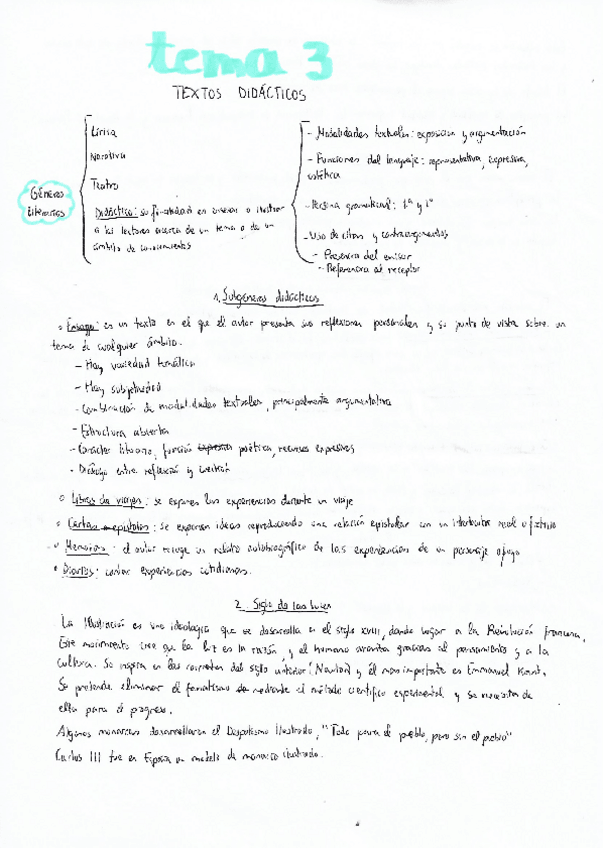 tema 3
TEXTOS DIDÁCTICOS
Géneros
literarios
Lírica
Narrativa
Teatro
Didáctica: su finalidad es enseñar o ilustrar
a los lectores acerca de un tema o de un
ámbito de conocimientos
- Modalidades textuales: exposición y argumentación
- Funciones del lenguaje: representativa, expresiva,
estética
- Persona gramatical: 1ª y
- Uso de citas y contraargumentos
- Presencia del emisor
- Referencia al receptor
1. Subgéneros didácticos
Ensayo: es un texto en el que el autor presenta sus reflexiones personales y su punto de vista sobre un
tema de cualquier ámbito.
- Hay variedad temática
- Hay subjetividad
- Combinación de modalidades textuales, principalmente argumentativa
- Estructura abierta
- Carácter literario, función poética, recursos expresivos
- Diálogo entre reflexión y
Libros de viajes: se exponen las experiencias durante un viaje
Cartas o epístolas: se expresan ideas reproduciendo una relación epistolar con un interlocutor real o ficticio
Memorias: el autor recoge un relato autobiográfico de las experiencias de un personaje
Diarios: contar experiencias cotidianas.
2. Siglo de las luces
La Ilustración es una ideología que se desarrolla en el siglo XVIII, dando lugar a la Revolución francesa.
Este movimiento cree que la luz es la razón, y el humano avanza gracias al pensamiento y a la
cultura. Se inspira en las corrientes del siglo anterior (Newton) y el más importante es Emmanuel Kant.
Se pretende eliminar el fanatismo mediante el método científico experimental y se necesita de
ella para el progreso.
Algunos monarcas desarrollaron el Despotismo Ilustrado, "Todo para el pueblo, pero sin el pueblo"
Carlos III fue en España un modelo de monarca ilustrado.